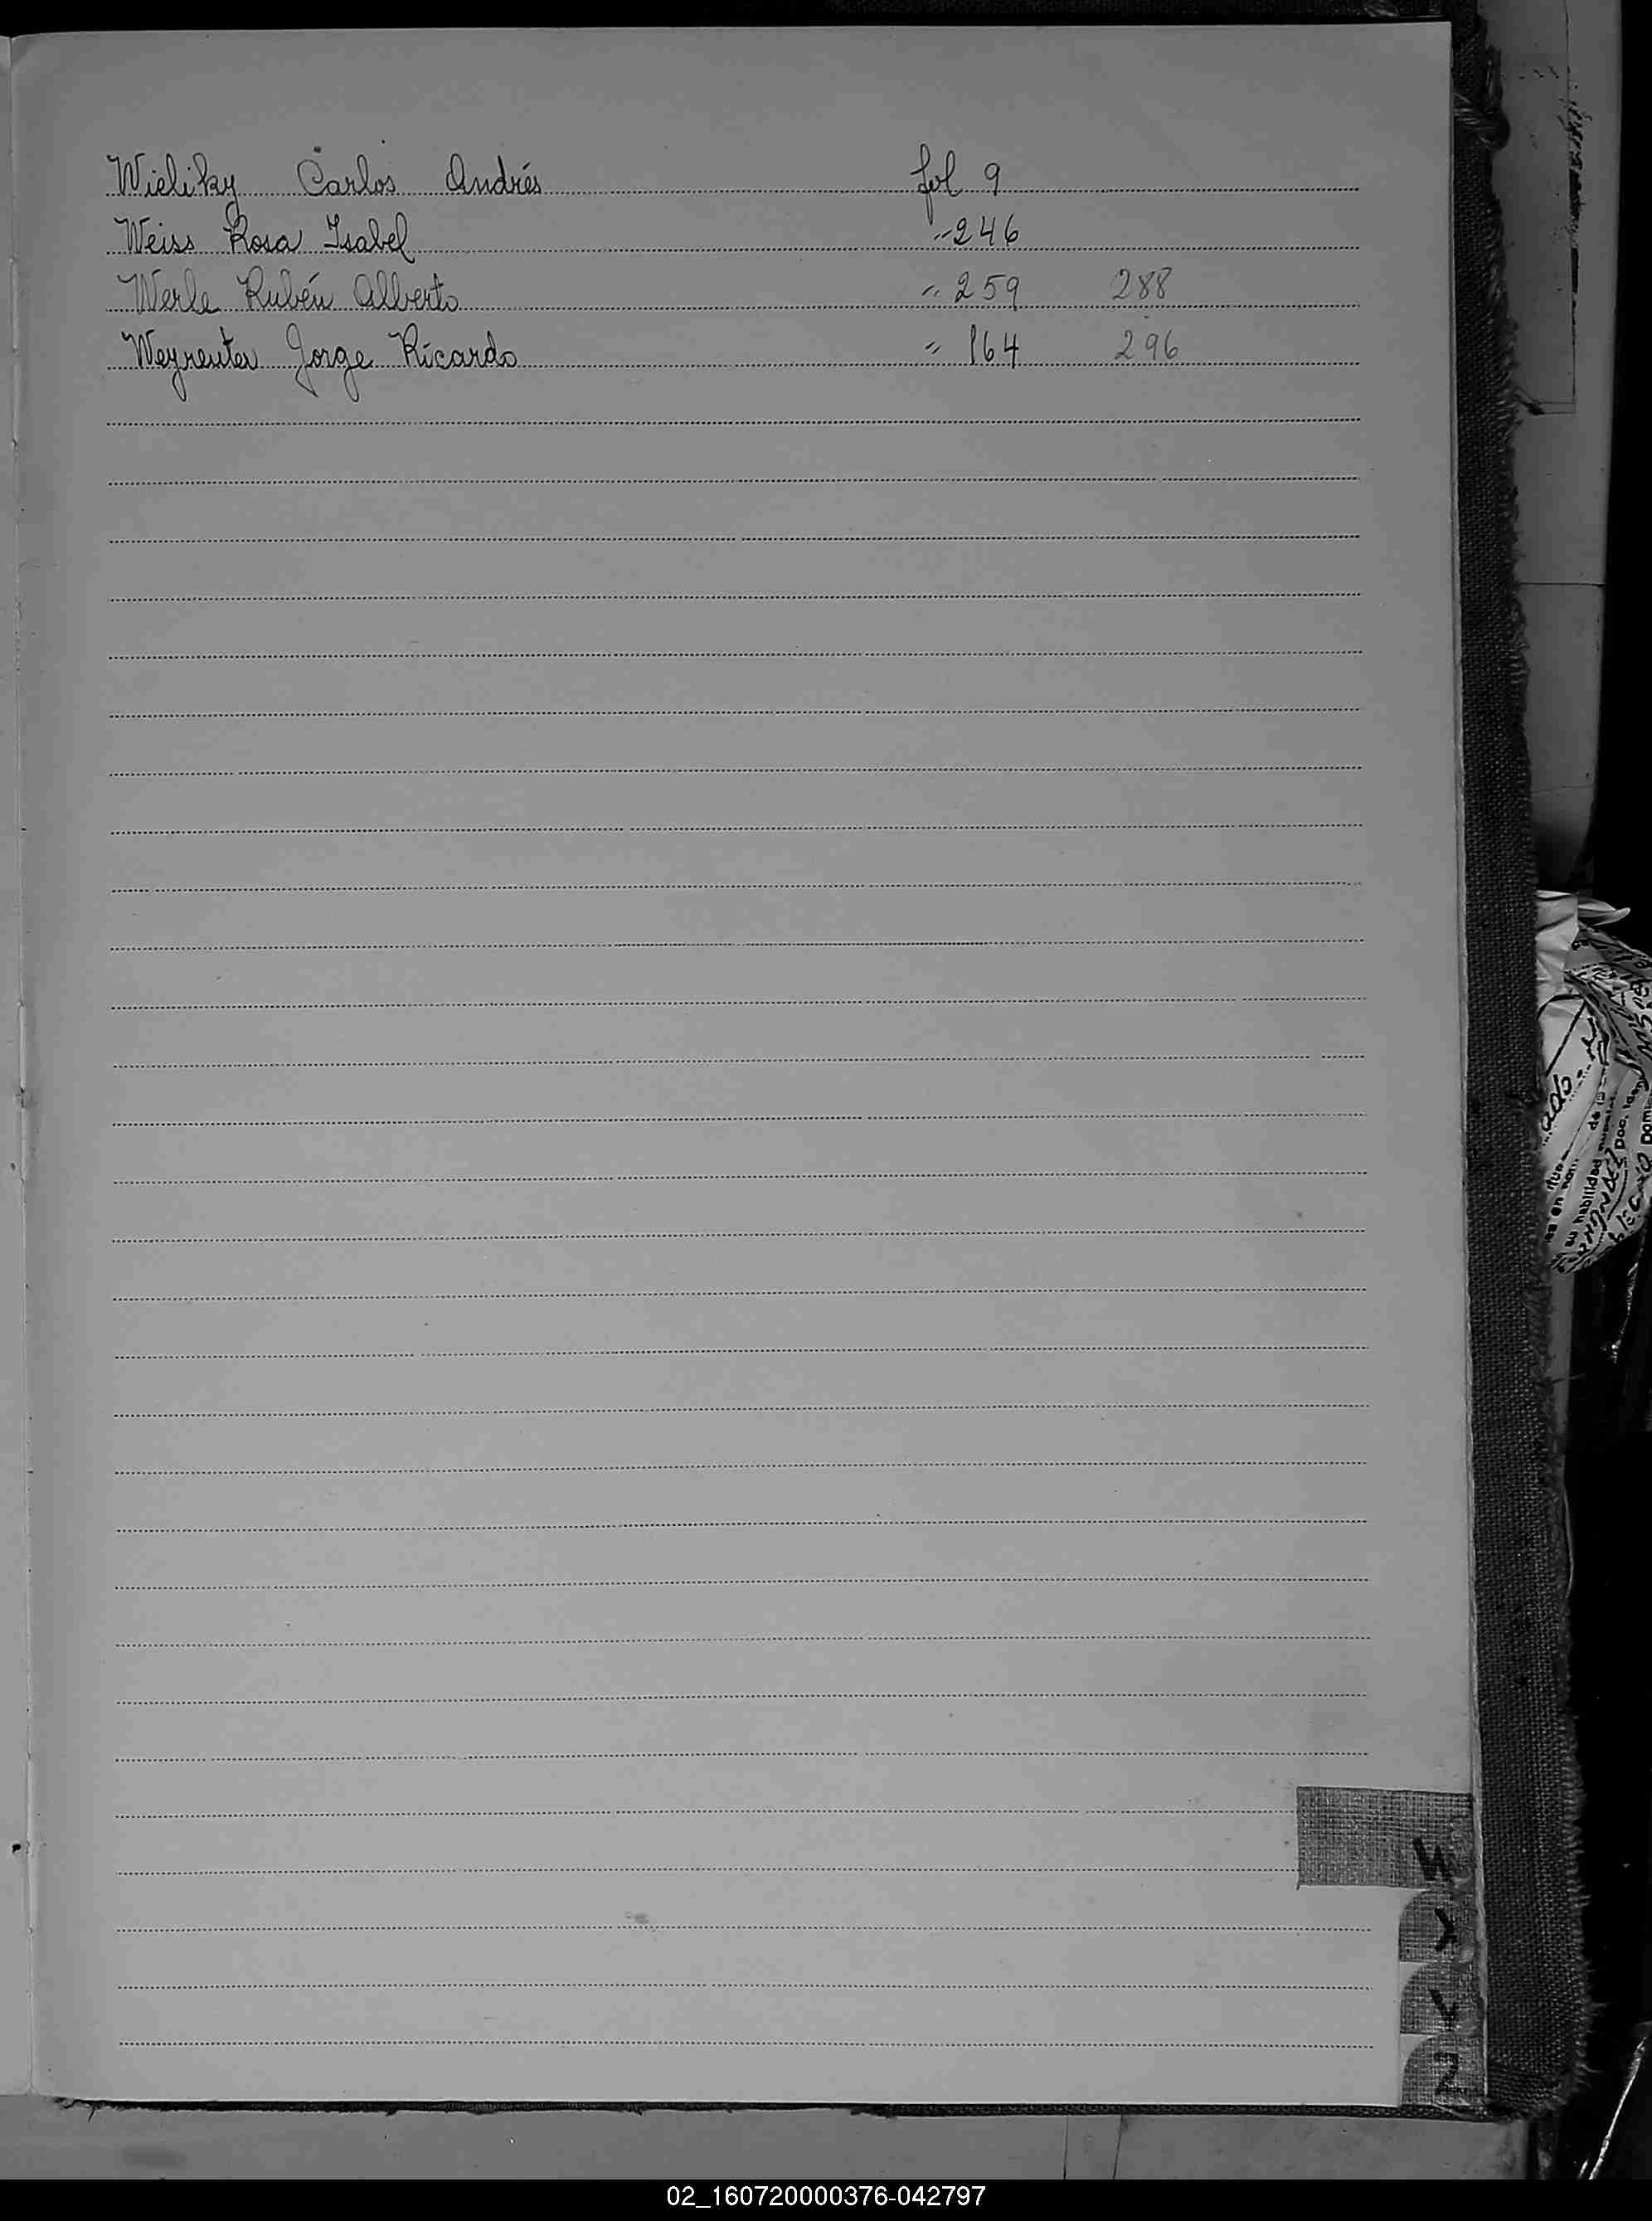 Wieliky Carlos Andrés fol 9
Weiss Rosa Isabel " 246
Werle Rubén Alberto " 259 288
Weyreuter Jorge Ricardo " 164 296
W
X
Y
Z
02_160720000376-042797